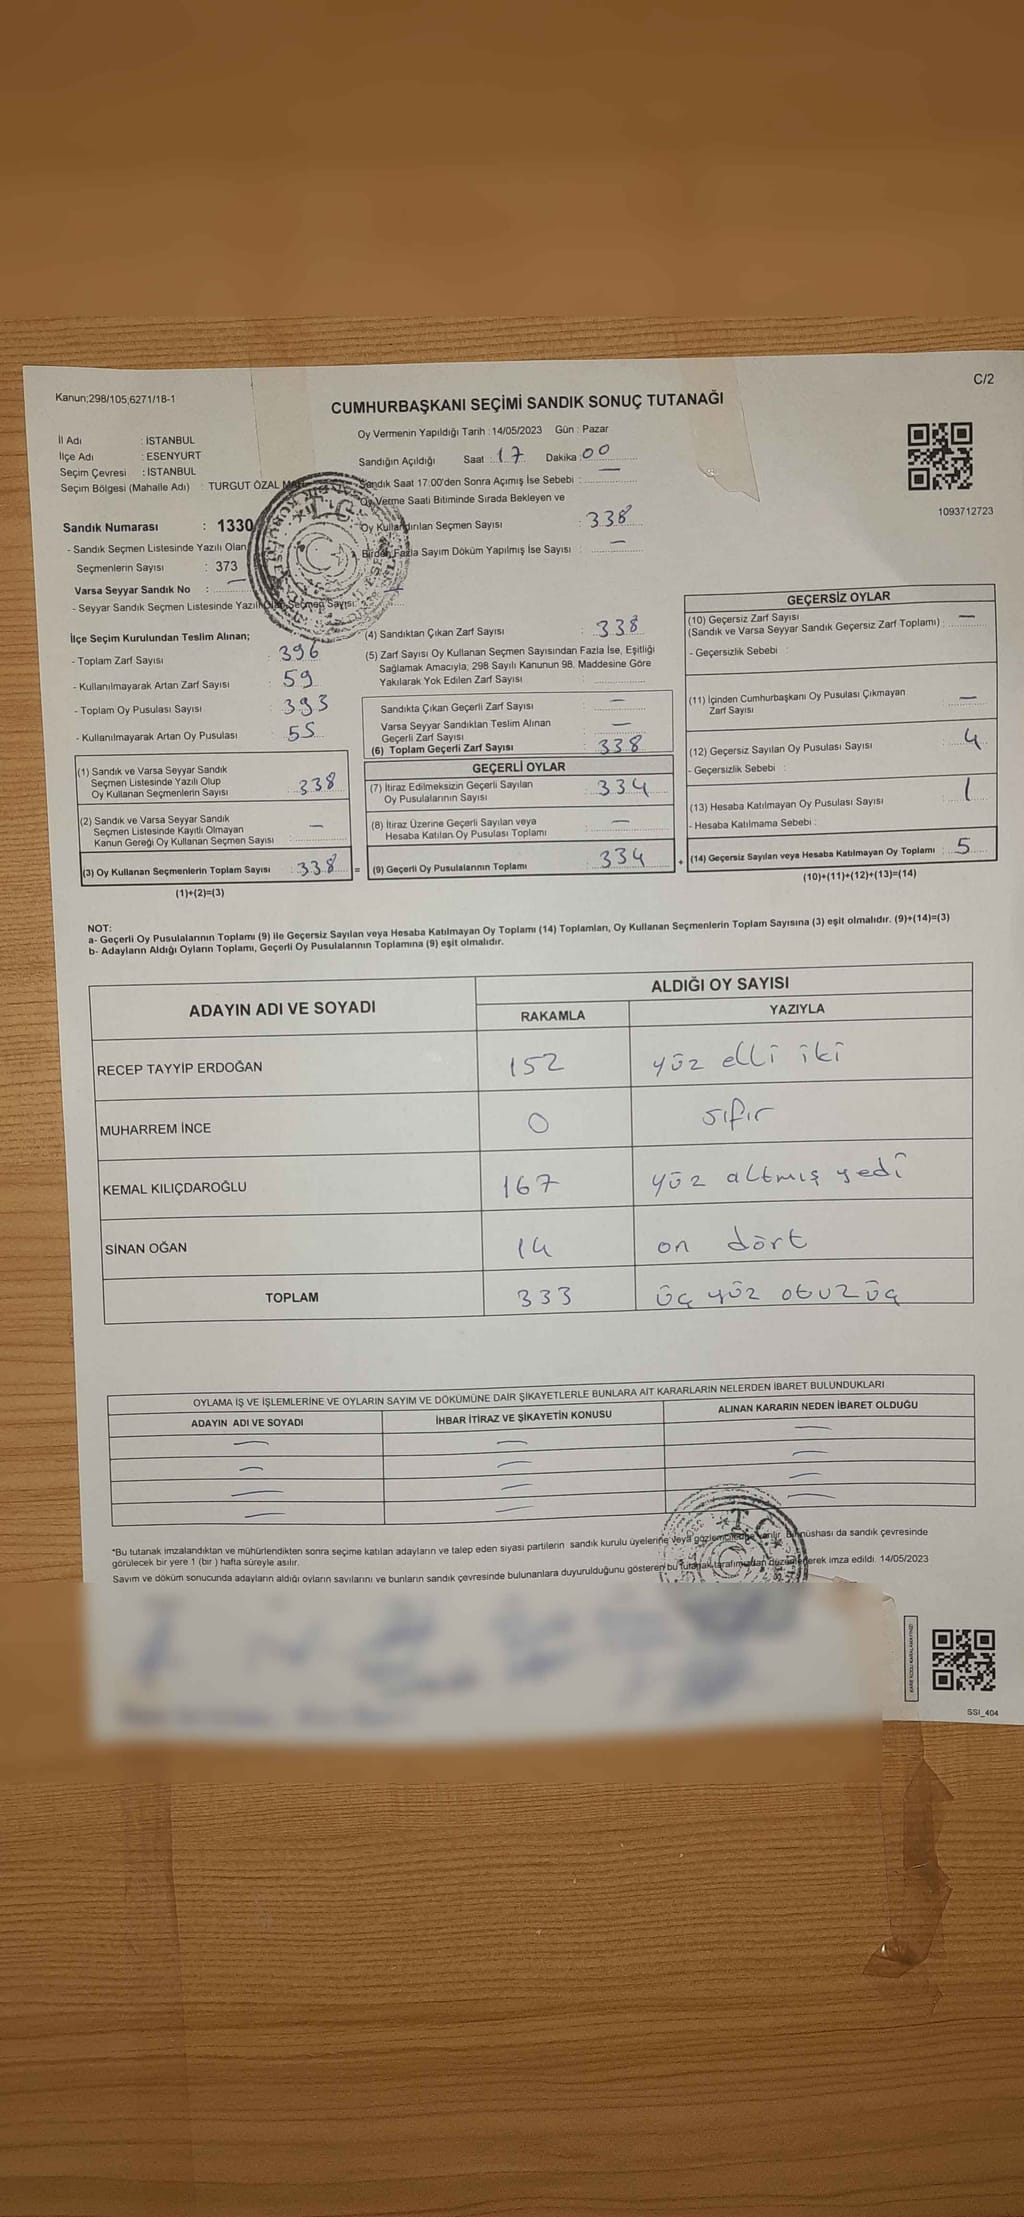 C/2
Kanun;298/105,6271/18-1
CUMHURBAŞKANI SEÇİMİ SANDIK SONUÇ TUTANAĞI
Oy Vermenin Yapıldığı Tarih : 14/05/2023 Gün : Pazar
İl Adı : İSTANBUL
İlçe Adı : ESENYURT
Seçim Çevresi : İSTANBUL
Seçim Bölgesi (Mahalle Adı) : TURGUT ÖZAL
Sandık Numarası : 1330
- Sandık Seçmen Listesinde Yazılı Olan
Seçmenlerin Sayısı : 373
Varsa Seyyar Sandık No : —
- Seyyar Sandık Seçmen Listesinde Yazılı Olan Seçmen Sayısı:
Sandığın Açıldığı Saat : 17 Dakika 00
Sandık Saat 17:00'den Sonra Açımış İse Sebebi : —
Oy Verme Saati Bitiminde Sırada Bekleyen ve
Oy Kullandırılan Seçmen Sayısı : 338
Birden Fazla Sayım Döküm Yapılmış İse Sayısı : —
1093712723
İlçe Seçim Kurulundan Teslim Alınan;
- Toplam Zarf Sayısı : 396
- Kullanılmayarak Artan Zarf Sayısı : 59
- Toplam Oy Pusulası Sayısı : 393
- Kullanılmayarak Artan Oy Pusulası : 55
(1) Sandık ve Varsa Seyyar Sandık
Seçmen Listesinde Yazılı Olup
Oy Kullanan Seçmenlerin Sayısı : 338
(2) Sandık ve Varsa Seyyar Sandık
Seçmen Listesinde Kayıtlı Olmayan
Kanun Gereği Oy Kullanan Seçmen Sayısı : —
(3) Oy Kullanan Seçmenlerin Toplam Sayısı : 338
(1)+(2)=(3)
(4) Sandıktan Çıkan Zarf Sayısı : 338
(5) Zarf Sayısı Oy Kullanan Seçmen Sayısından Fazla İse, Eşitliği
Sağlamak Amacıyla, 298 Sayılı Kanunun 98. Maddesine Göre
Yakılarak Yok Edilen Zarf Sayısı :
Sandıkta Çıkan Geçerli Zarf Sayısı : —
Varsa Seyyar Sandıktan Teslim Alınan
Geçerli Zarf Sayısı : —
(6) Toplam Geçerli Zarf Sayısı : 338
GEÇERLİ OYLAR
(7) İtiraz Edilmeksizin Geçerli Sayılan
Oy Pusulalarının Sayısı : 334
(8) İtiraz Üzerine Geçerli Sayılan veya
Hesaba Katılan Oy Pusulası Toplamı : —
(9) Geçerli Oy Pusulalarının Toplamı : 334
GEÇERSİZ OYLAR
(10) Geçersiz Zarf Sayısı
(Sandık ve Varsa Seyyar Sandık Geçersiz Zarf Toplamı) : —
- Geçersizlik Sebebi :
(11) İçinden Cumhurbaşkanı Oy Pusulası Çıkmayan
Zarf Sayısı : —
(12) Geçersiz Sayılan Oy Pusulası Sayısı : 4
- Geçersizlik Sebebi :
(13) Hesaba Katılmayan Oy Pusulası Sayısı : 1
- Hesaba Katılmama Sebebi :
(14) Geçersiz Sayılan veya Hesaba Katılmayan Oy Toplamı : 5
(10)+(11)+(12)+(13)=(14)
NOT:
a- Geçerli Oy Pusulalarının Toplamı (9) ile Geçersiz Sayılan veya Hesaba Katılmayan Oy Toplamı (14) Toplamları, Oy Kullanan Seçmenlerin Toplam Sayısına (3) eşit olmalıdır. (9)+(14)=(3)
b- Adayların Aldığı Oyların Toplamı, Geçerli Oy Pusulalarının Toplamına (9) eşit olmalıdır.
ADAYIN ADI VE SOYADI ALDIĞI OY SAYISI
RAKAMLA YAZIYLA
RECEP TAYYİP ERDOĞAN 152 yüz elli iki
MUHARREM İNCE 0 sıfır
KEMAL KILIÇDAROĞLU 167 yüz altmış yedi
SİNAN OĞAN 14 on dört
TOPLAM 333 üç yüz otuz üç
OYLAMA İŞ VE İŞLEMLERİNE VE OYLARIN SAYIM VE DÖKÜMÜNE DAİR ŞİKAYETLERLE BUNLARA AİT KARARLARIN NELERDEN İBARET BULUNDUKLARI
ADAYIN ADI VE SOYADI İHBAR İTİRAZ VE ŞİKAYETİN KONUSU ALINAN KARARIN NEDEN İBARET OLDUĞU
*Bu tutanak imzalandıktan ve mühürlendikten sonra seçime katılan adayların ve talep eden siyasi partilerin sandık kurulu üyelerine veya gözlemcilerine verilir. Bir nüshası da sandık çevresinde
görülecek bir yere 1 (bir ) hafta süreyle asılır.
Sayım ve döküm sonucunda adayların aldığı oyların sayılarını ve bunların sandık çevresinde bulunanlara duyurulduğunu gösteren bu tutanak tarafımızdan düzenlenerek imza edildi. 14/05/2023
SSI_404